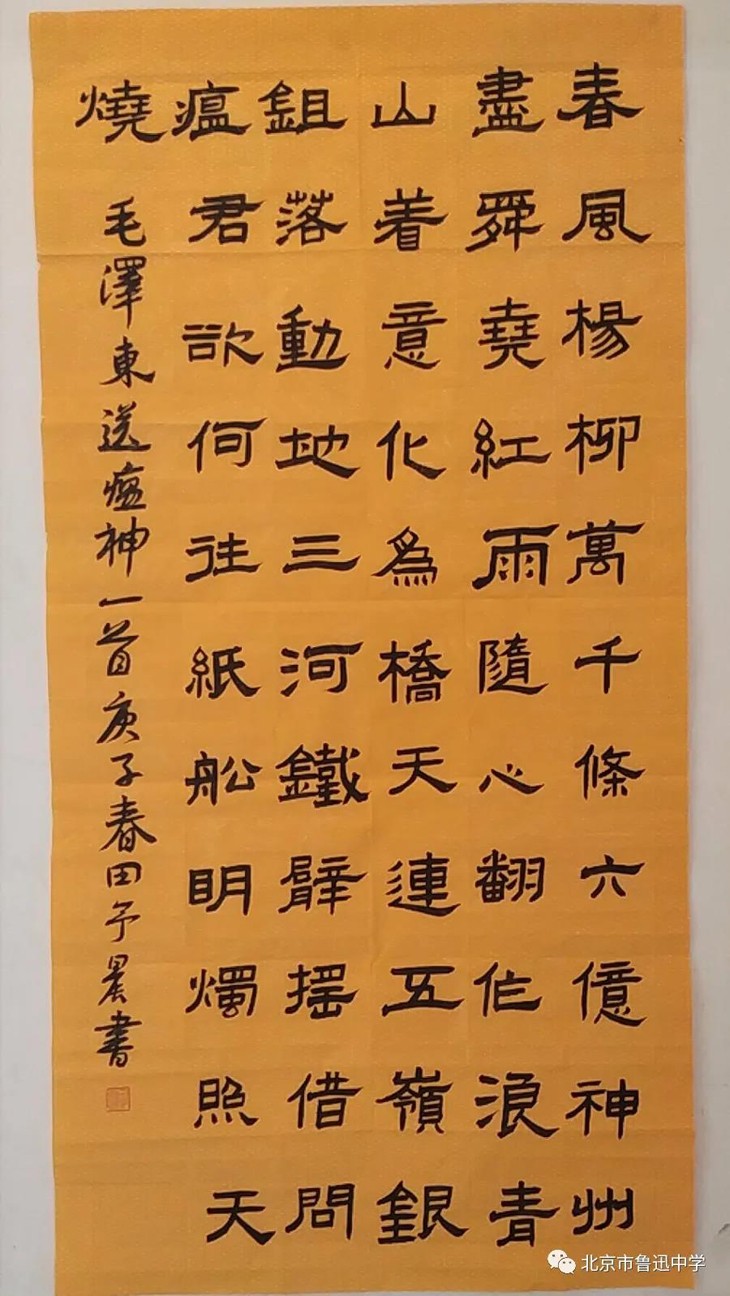 春風楊柳萬千條六億神州
盡舜堯紅雨隨心翻作浪青
山着意化為橋天連五嶺銀
鉏落動地三河鐵臂摇借問
瘟君欲何往紙船明燭照天
燒
毛澤東送瘟神一首庚子春田予晨書
北京市鲁迅中学